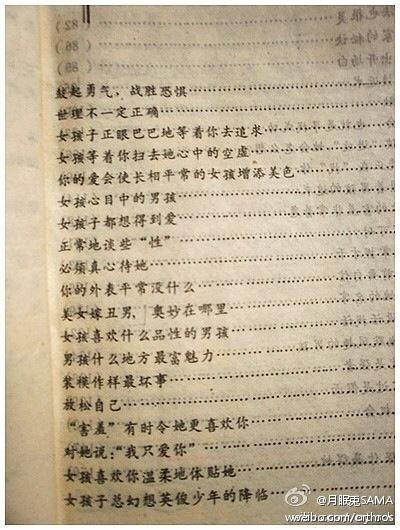 鼓起勇气，战胜恐惧
世理不一定正确
女孩子正眼巴巴地等着你去追求
女孩等着你扫去她心中的空虚
你的爱会使长相平常的女孩增添美色
女孩心目中的男孩
女孩子都想得到爱
正常地谈些“性”
必须真心待她
你的外表平常没什么
美女嫁丑男，奥妙在哪里
女孩喜欢什么品性的男孩
男孩什么地方最富魅力
装模作样最坏事
放松自己
“害羞”有时令她更喜欢你
对她说：“我只爱你”
女孩喜欢你温柔地体贴她
女孩子总幻想英俊少年的降临
@月眠兎SAMA